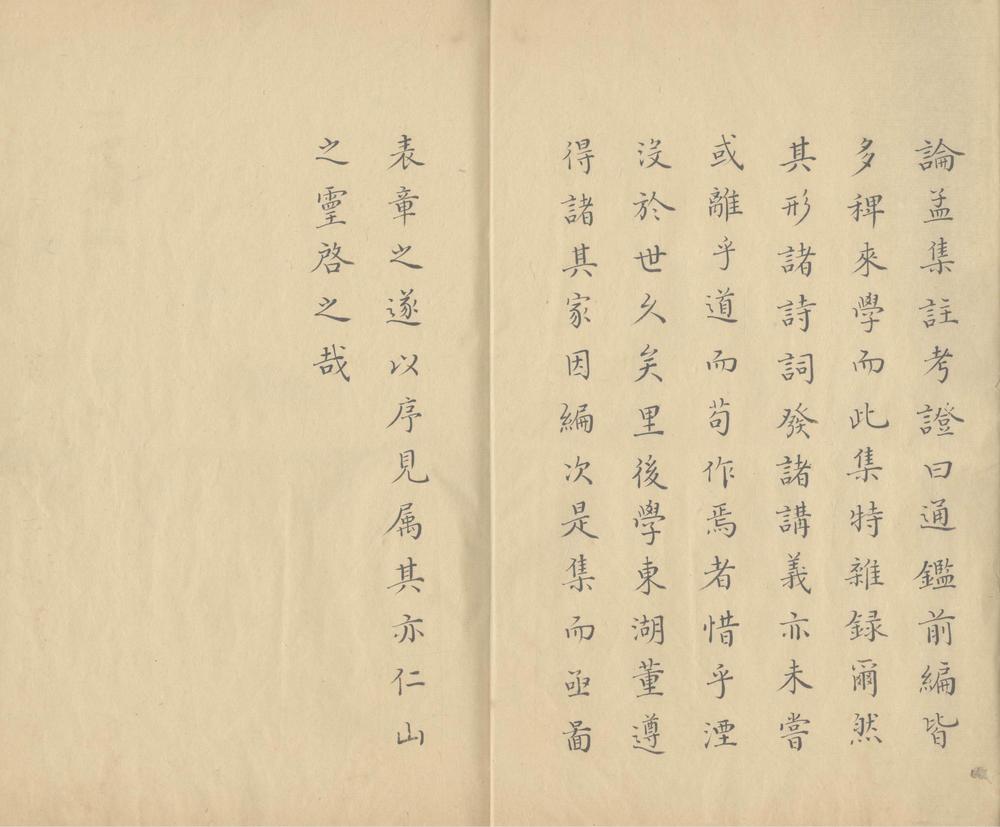 論孟集註考證曰通鑑前編皆
多稗來學而此集特雜録爾然
其形諸詩詞發諸講義亦未嘗
或離乎道而苟作焉者惜乎湮
没於世久矣里後學東湖董遵
得諸其家因編次是集而亟啚
表章之遂以序見属其亦仁山
之靈啓之哉